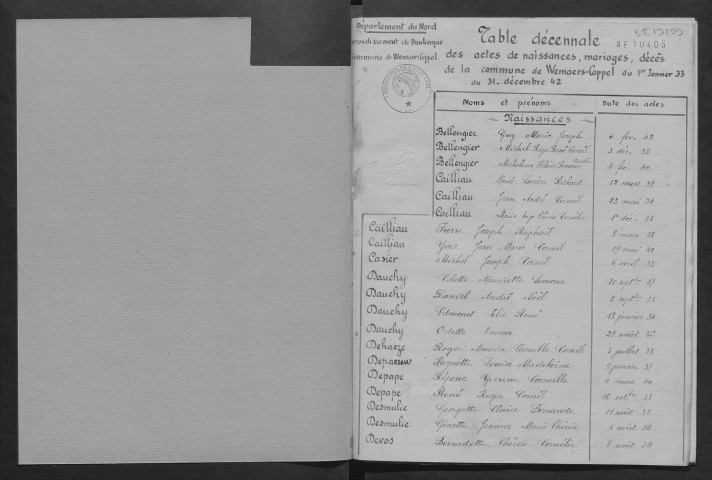 Département du Nord
arrondissement de Dunkerque
Commune de Wemaers-Cappel
3E15199
AE 10403
Table décennale
des actes de naissances, mariages, décès
de la commune de Wemaers-Cappel du 1er Janvier 33
au 31 décembre 42
Noms et prénoms Date des actes
Naissances
Bellengier Guy Marie Joseph 6 fev. 42
Bellengier Michel 3 déc.
Bellengier Micheline 4 fev. 40
Cailliau René Lucien Richard 12 mars
Cailliau Jean André Corneil 23 mai 34
Cailliau Marie 1er déc.
Cailliau Pierre Joseph Raphaël 8 mars 38
Cailliau Yves Jean Marie Corneil 19 mai 40
Casier Michel Joseph Corneil 6 avril 35
Dauchy Colette Mauricette Simone 20 septbre 37
Dauchy Daniel André Noël 2 septbre
Dauchy Edmond Elie René 13 janvier 34
Dauchy Odette Emma 29 août
Dehaeze Roger Maurice Camille Corneil 3 juillet 33
Depaeuw Huguette Louise Madeleine 9 janvier
Depape Réjane Yvonne Corneille 6 mars 40
Depape René Roger Corneil 16 octbre 33
Desmulie Georgette Claire Fernande 11 août
Desmulie Ginette Jeanne Marie Thérèse 4 août
Devos Bernadette Thérèse Cornélie 8 août 34